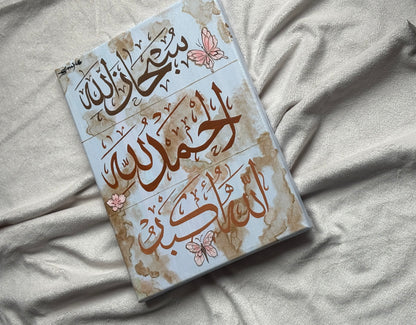 سُبْحَانَ اللّٰه
الْحَمْدُ لِلّٰه
اللّٰهُ أَكْبَرُ